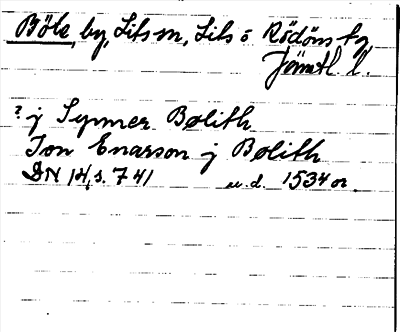 Böle, by, Lits sn, Lits o Rödöns tg
Jämtl. l.
? j Synner Bølith
Jon Enarson j Bølith
DN 14, s. 741 u.d. 1534 or.